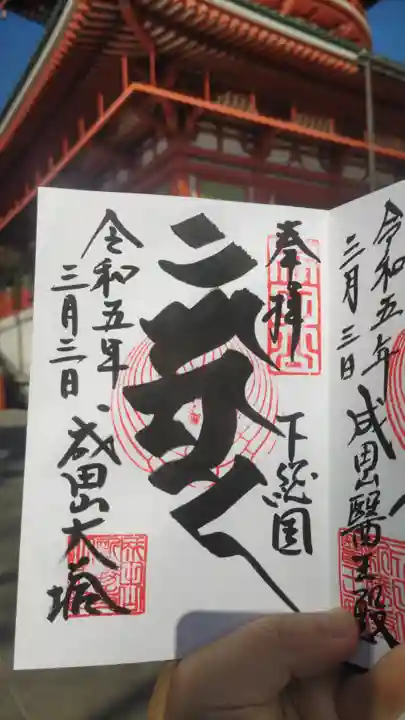 令和五年
三月三日
成田山醫王殿
奉拝
下総国
令和五年
三月三日
成田山大塔